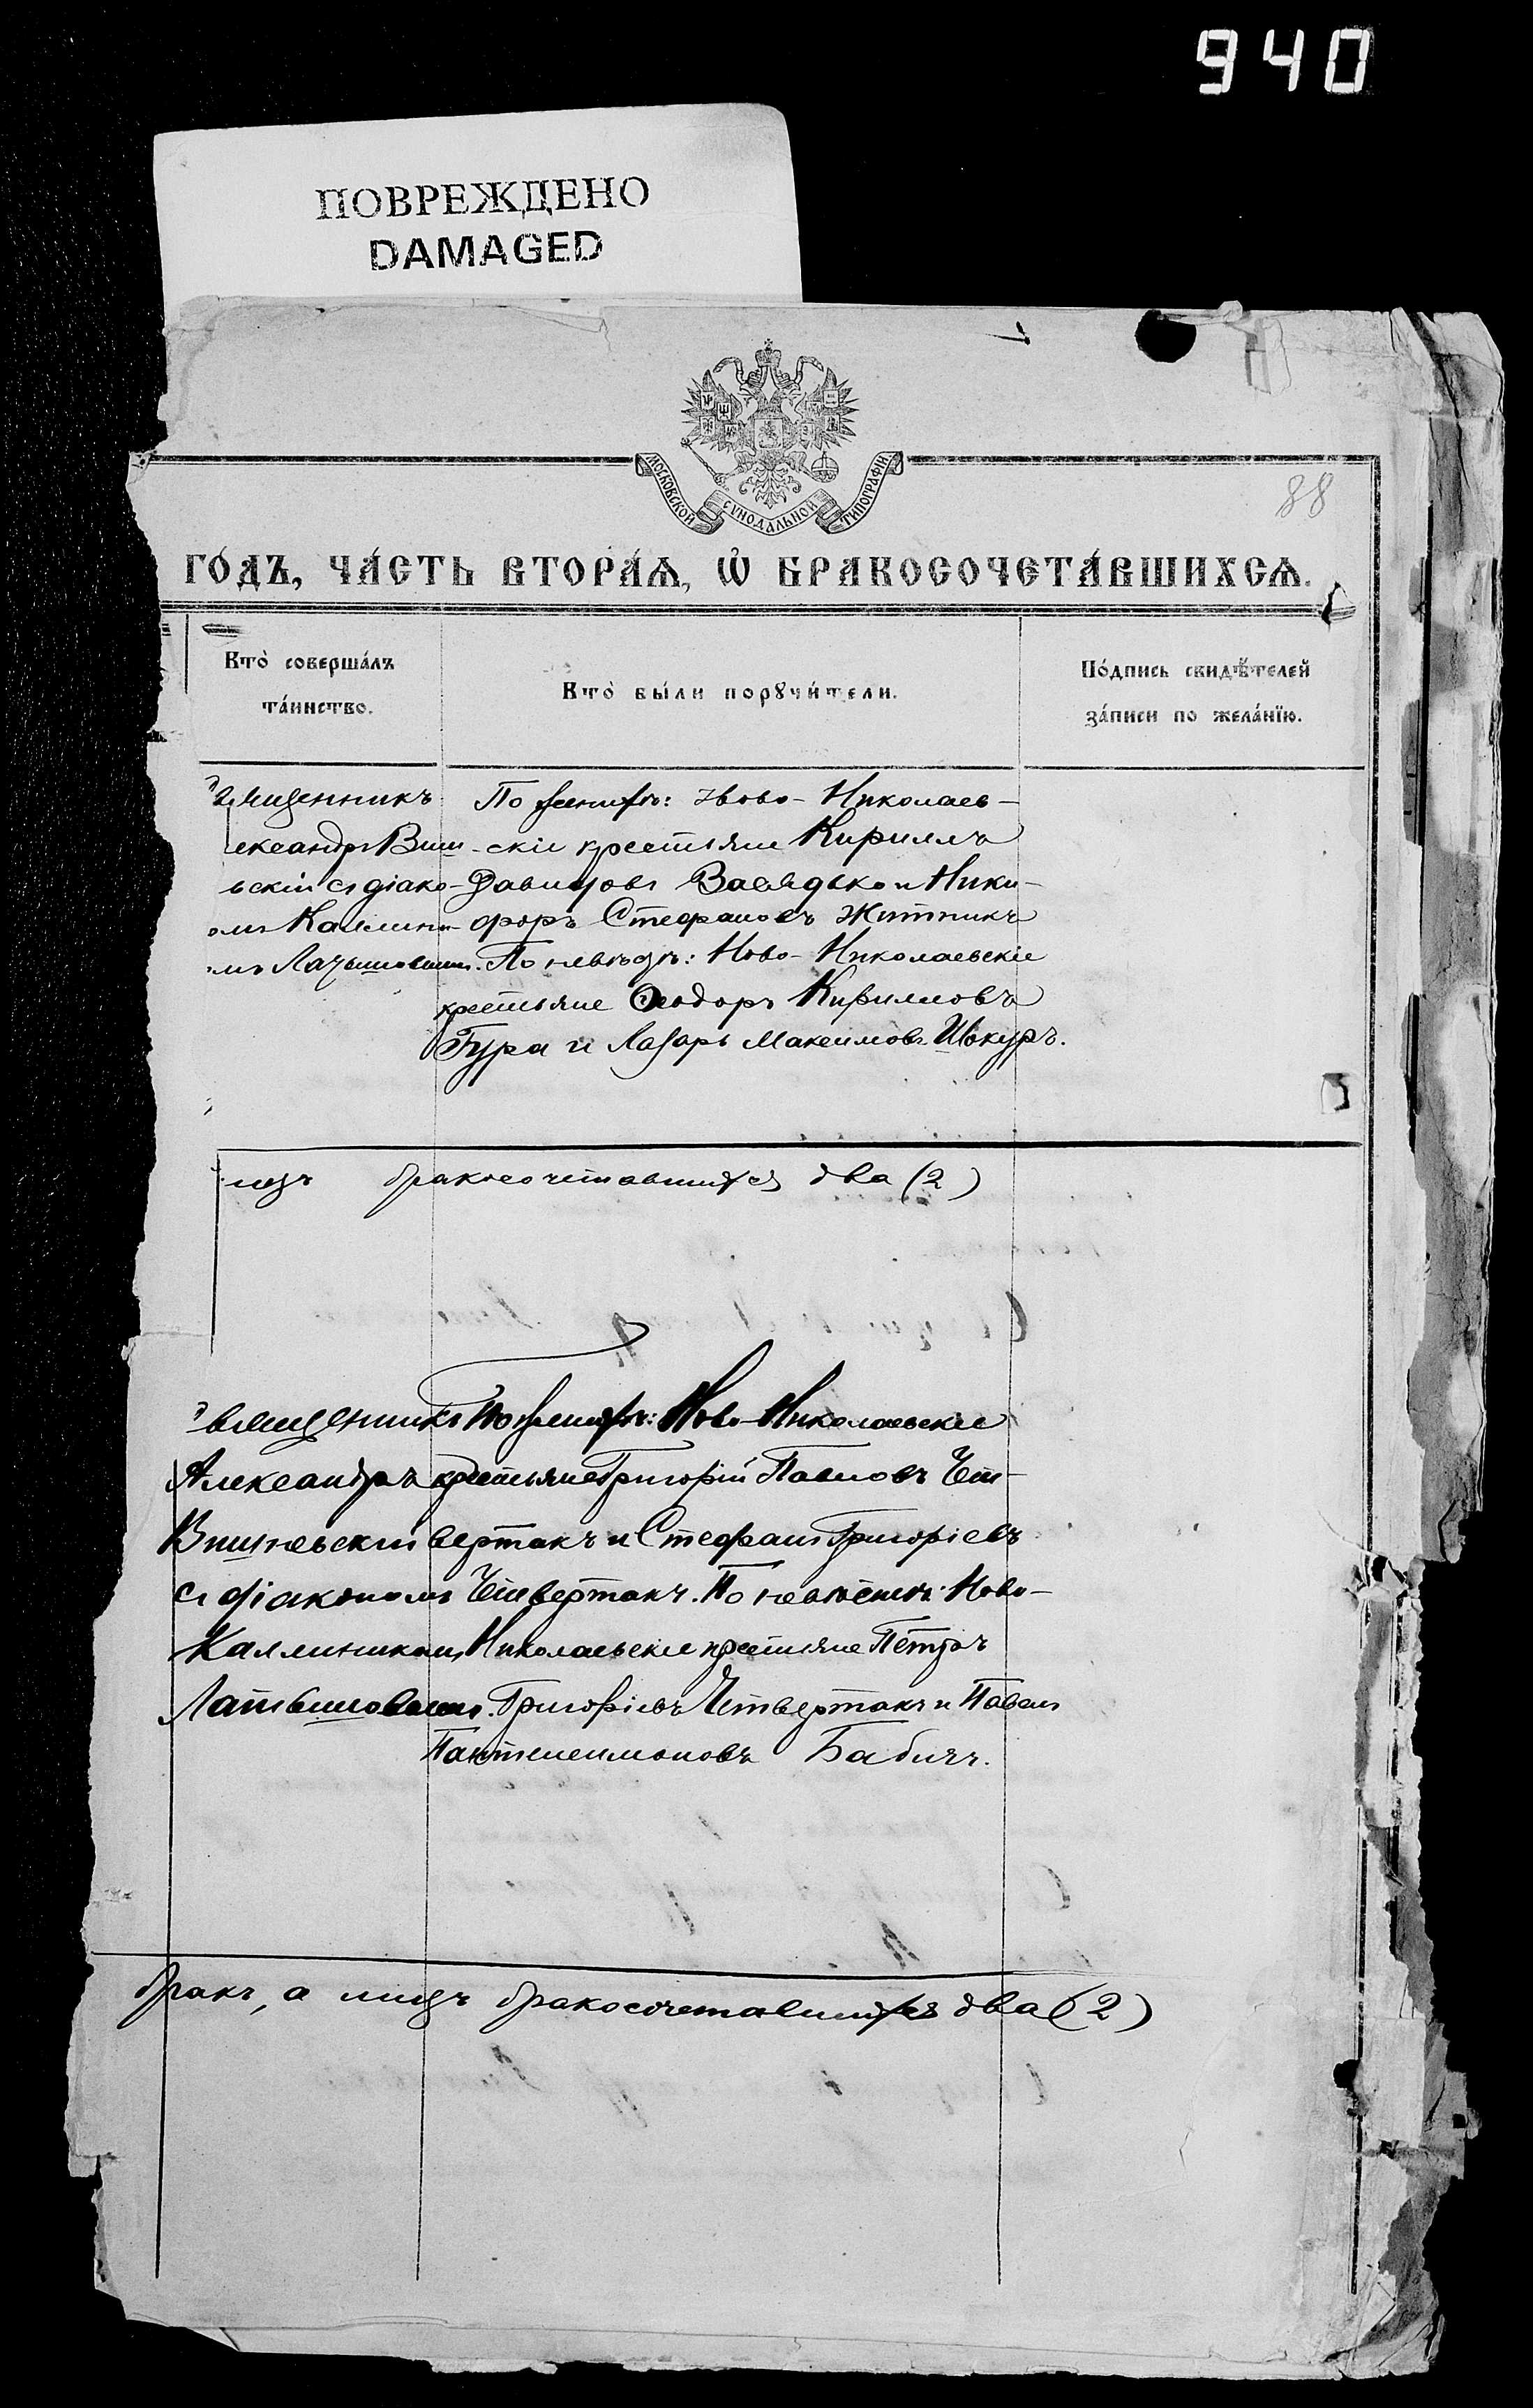 940
ПОВРЕЖДЕНО
DAMAGED
МОСКОВСКОЙ СУНОДАЛЬНОЙ ТИПОГРАФІИ
88
ГО́ДЪ, ЧА́СТЬ ВТОРА́Ѧ, Ѡ҆ БРАКОСОЧЕТА́ВШИХСѦ.
Кто̀ соверша́лъ
та́инство.
Кто̀ бы́ли порꙋчи́тели.
По́дпись свидѣ́телей
за́писи по жела́нїю.
вященникъ
лександръ Виш
ьскій съ діако-
омъ Каллини-
мъ Латышовымъ.
По женихѣ: Ново-Николаев-
-скіе крестьяне Кириллъ
Давидовъ и Ники-
форъ Стефановъ Житникъ
По невѣстѣ: Ново-Николаевскіе
крестьяне Ѳеодоръ Кирилловъ
Гура и Лазарь Максимовъ Шкуръ.
лицъ бракосочетавшихся два (2)
вященникъ
Александръ
Вишневскій
съ діакономъ
Каллиникомъ
Латышовымъ.
По женихѣ: Ново-Николаевскіе
крестьяне Григорій Павловъ Чет-
вертакъ и Стефанъ Григорьевъ
Четвертакъ. По невѣстѣ: Ново-
Николаевскіе крестьяне Петръ
Григорьевъ Четвертакъ и Павелъ
Пантелеимоновъ Бабичъ.
бракъ, а лицъ бракосочетавшихся два (2)